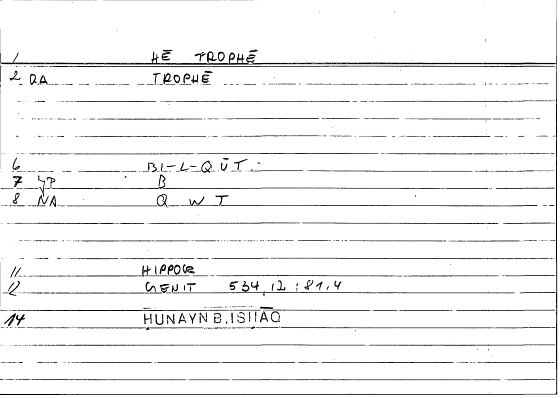 1 HĒ TROPHĒ
2 QA TROPHĒ
6 BI-L-QŪT.
7 YP B
8 NA Q W T
11 HIPPOCR
12 GENIT 534,12:81.4
14 ḤUNAYN B. ISḤĀQ